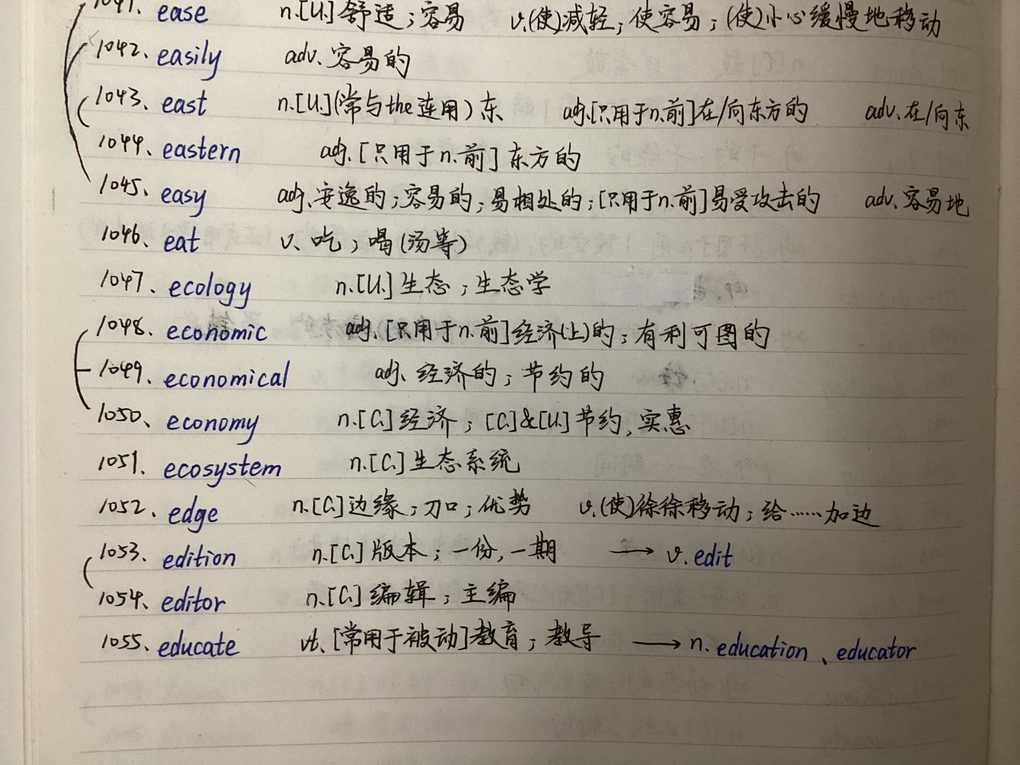 1041. ease n.[U.]舒适；容易 v.(使)减轻；使容易；(使)小心缓慢地移动
1042. easily adv.容易的
1043. east n.[U.](常与the连用)东 adj.[只用于n.前]在/向东方的 adv.在/向东
1044. eastern adj.[只用于n.前]东方的
1045. easy adj.安逸的；容易的；易相处的；[只用于n.前]易受攻击的 adv.容易地
1046. eat v.吃；喝(汤等)
1047. ecology n.[U.]生态；生态学
1048. economic adj.[只用于n.前]经济(上)的；有利可图的
1049. economical adj.经济的；节约的
1050. economy n.[C.]经济；[C.]&[U.]节约,实惠
1051. ecosystem n.[C.]生态系统
1052. edge n.[C.]边缘；刀口；优势 v.(使)徐徐移动；给……加边
1053. edition n.[C.]版本；一份,一期 → v.edit
1054. editor n.[C.]编辑；主编
1055. educate vt.[常用于被动]教育；教导 → n.education、educator